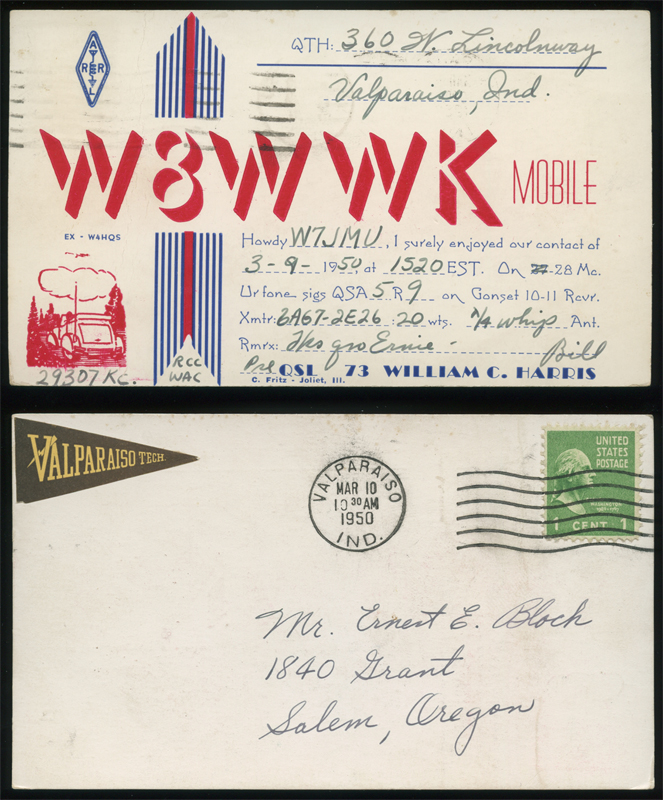 ARRL
QTH: 360 W. Lincolnway
Valparaiso, Ind.
W8WWK MOBILE
EX - W4HQS
Howdy W7JMU, I surely enjoyed our contact of
3-9-1950 at 1520 EST. On 27-28 Mc.
Ur fone sigs QSA 5 R 9 on Gonset 10-11 Rcvr.
Xmtr: 6AG7-2E26 20 wts. 1/4 whip Ant.
Rmrx: Tks qso Ernie - Bill
29307 KC.
RCC
WAC
Pse QSL 73 WILLIAM C. HARRIS
C. Fritz - Joliet, Ill.
VALPARAISO TECH.
VALPARAISO
MAR 10
10 30 AM
1950
IND.
UNITED
STATES
POSTAGE
WASHINGTON
1 CENT 1
Mr. Ernest E. Bloch
1840 Grant
Salem, Oregon